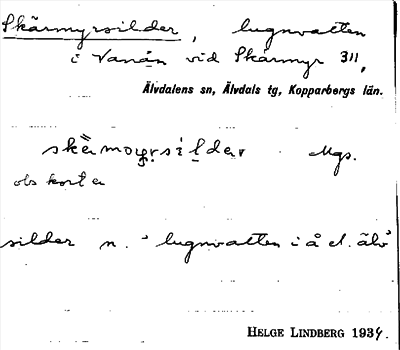 Skärmyrsilder, lugnvatten
i Vanån vid Skärmyr 311,
Älvdalens sn, Älvdals tg, Kopparbergs län.
Mgs.
obs kort e
silder n. "lugnvatten i å el. älv"
HELGE LINDBERG 1934.